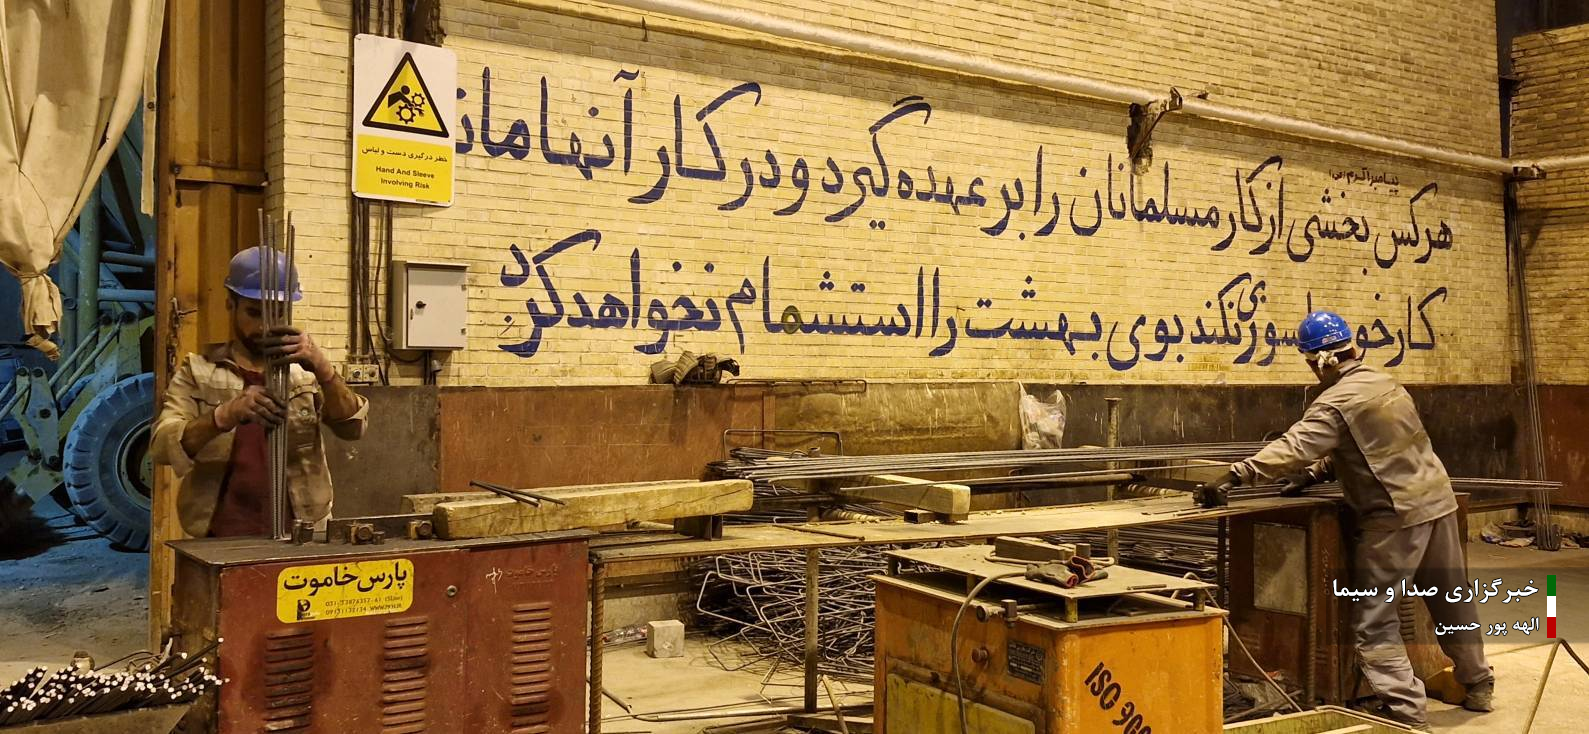 خطر درگیری دست و لباس
Hand And Sleeve
Involving Risk
پیامبر اکرم (ص)
هرکس بخشی از کار مسلمانان را بر عهده گیرد و در کار آنها مان
کار خو سوزی نکند بوی بهشت را استشمام نخواهد کرد
پارس خاموت
ISO 900
خبرگزاری صدا و سیما
الهه پور حسین